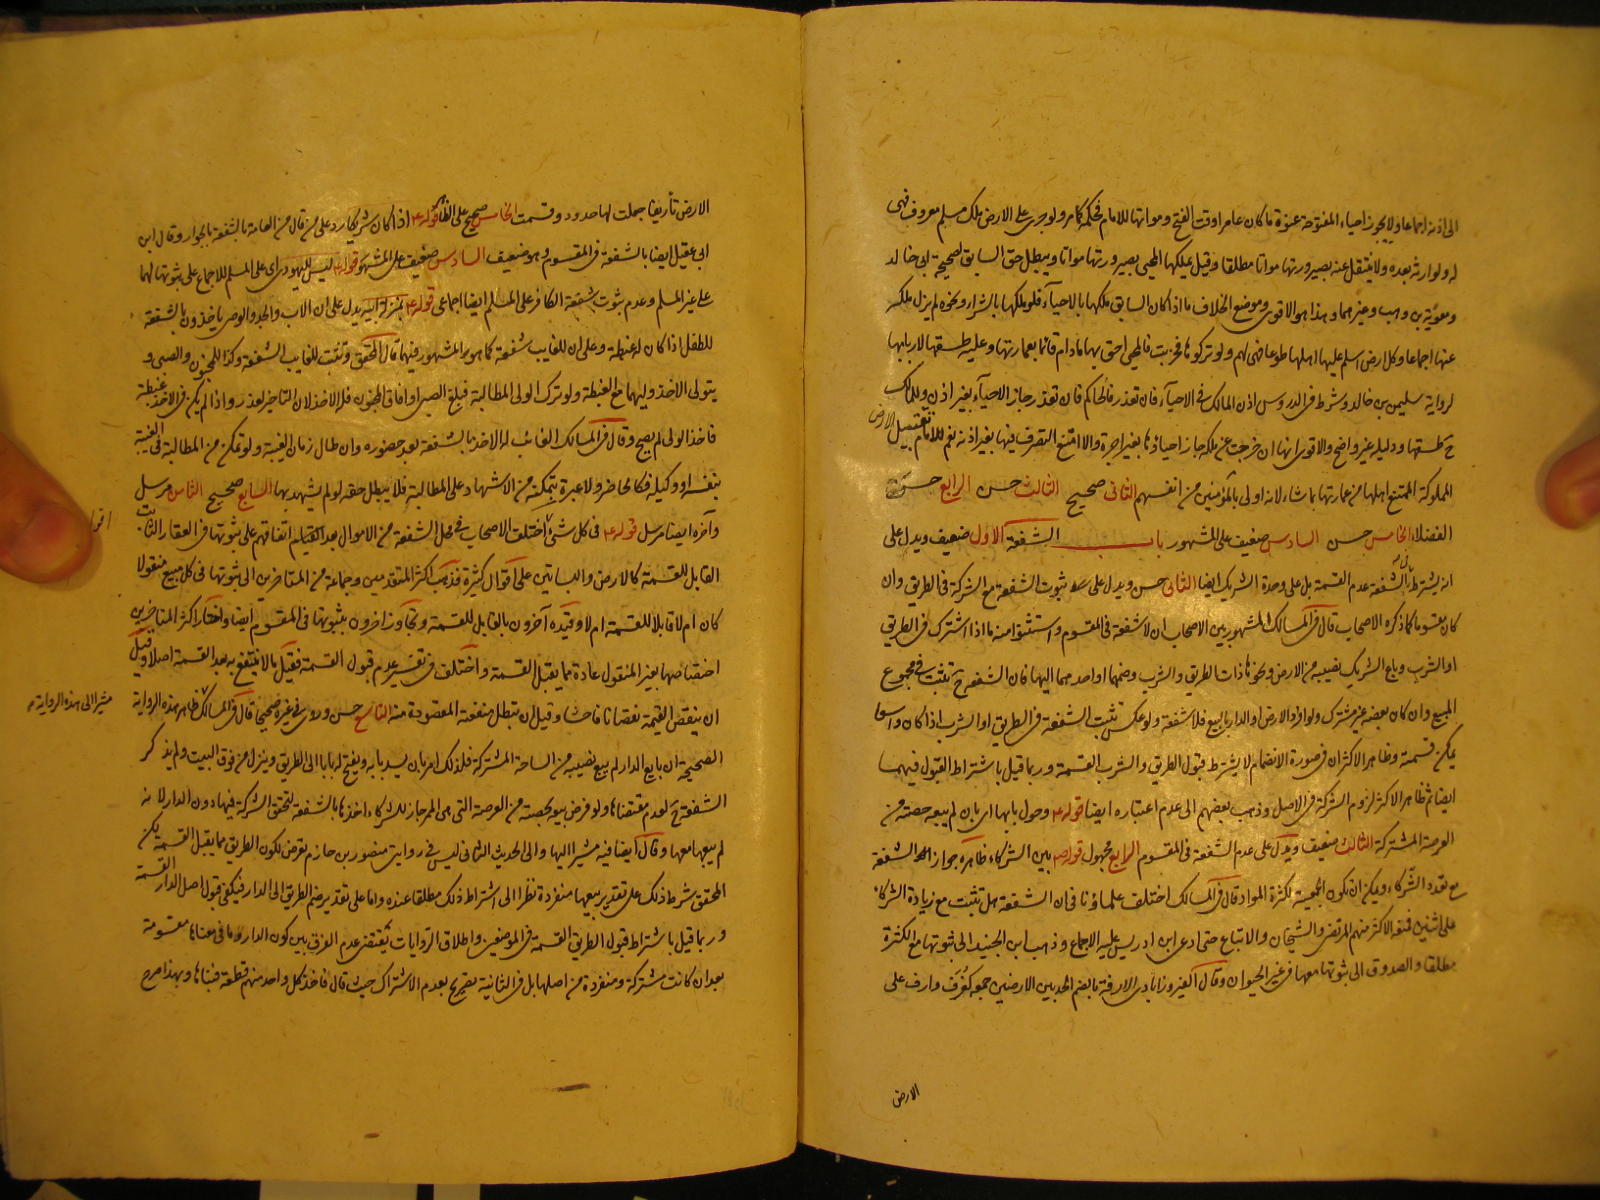 الى اذنه اجماعا ولا يجوز احياء المفتوحة عنوة ما كان عامرا وقت الفتح ومواتها للامام فحكمه كما مر ولو جرى على الارض ملك مسلم معروف فهي
له ولوارثه بعده ولا ينتقل عنه بصيرورتها مواتا مطلقا وقيل يملكها المحيي بصيرورتها مواتا ويبطل حق السابق لصحيحة ابى خالد
ومعوية بن وهب وغيرهما وهذا هو الاقوى وموضع الخلاف ما اذا كان السابق ملكها بالاحياء فلو ملكها بالشراء ونحوه لم يزل ملكه
عنها اجماعا وكل ارض اسلم عليها اهلها طوعا فهى لهم ولو تركوها فخربت فالمحيى احق بها ما دام قائما بعمارتها وعليه طسقها لاربابها
لرواية سليمن بن خالد وشرط فى الدروس اذن المالك فى الاحياء فان تعذر فالحاكم فان تعذر جاز الاحياء بغير اذن وللمالك
ح طسقها ودليله غير واضح والاقوى انها ان خرجت عن ملكه جاز احياؤها بغير اجرة والا امتنع التصرف فيها بغير اذنه نعم للامام تقبيل الارض
المملوكة الممتنع اهلها من عمارتها بما شاء لانه اولى بالمؤمنين من انفسهم الثانى صحيح الثالث حسن الرابع حسن
الفضلاء الخامس حسن السادس ضعيف على المشهور باب الشفعة الاول ضعيف ويدل على
انه يشترط فى الشفعة عدم القسمة بل على وحدة الشريك ايضا الثانى حسن ويدل على ثبوت الشفعة مع الشركة فى الطريق وان
كان مقسوما كما ذكره الاصحاب قال فى المسالك المشهور بين الاصحاب ان لا شفعة فى المقسوم واستثنوا منه ما اذا اشترك فى الطريق
او الشرب وباع الشريك نصيبه من الارض ونحوها ذات الطريق والشرب وضمهما او احدهما اليها فان الشفعة ح تثبت فى مجموع
المبيع وان كان بعضه غير مشترك ولو افرد الارض او الدار بالبيع فلا شفعة ولو عكس تثبت الشفعة فى الطريق او الشرب اذا كان واسعا
يمكن قسمته وظاهر الاكثر ان فى صورة الانضمام لا يشترط قبول الطريق والشرب القسمة وربما قيل باشتراط القبول فيهما
ايضا ثم ظاهر الاكثر لزوم الشركة فى الاصل وذهب بعضهم الى عدم اعتباره ايضا قوله ع وحول بابها اى بان لم يبعه حصته من
العرصة المشتركة الثالث ضعيف ويدل على عدم الشفعة فى المقسوم الرابع مجهول قوله ع بين الشركاء ظاهره جواز الشفعة
مع تعدد الشركاء ويمكن ان تكون الجمعية لكثرة المواد قال فى المسالك اختلف علماؤنا فى ان الشفعة هل تثبت مع زيادة الشركاء
على اثنين فمنعه الاكثر منهم المرتضى والشيخان والاتباع حتى ادعى ابن ادريس عليه الاجماع وذهب ابن الجنيد الى ثبوتها مع الكثرة
مطلقا والصدوق الى ثبوتها معها فى غير الحيوان وقال الفيروزابادى الارفة بالضم الحد بين الارضين جمعه كغرف وارف على
الارض
الارض تأريفا جعلت لها حدود وقسمت الخامس صحيح على الظاهر قوله ع اذا كان شريكا رد على من قال من العامة بالشفعة بالجوار وقال ابن
ابى عقيل ايضا بالشفعة فى المقسوم وهو ضعيف السادس ضعيف على المشهور قوله ع ليس لليهودى اى على المسلم للاجماع على ثبوتها لهما
على غير المسلم وعدم ثبوت شفعة الكافر على المسلم ايضا اجماعى قوله ع بمنزلة ابيه يدل على ان الاب والجد والوصى ياخذون بالشفعة
للطفل اذا كان له غبطة وعلى ان للغايب شفعة كما هو المشهور فيهما قال المحقق وتثبت للغايب الشفعة وكذا للمجنون والصبى و
يتولى الاخذ وليهما مع الغبطة ولو ترك الولى المطالبة فبلغ الصبى او افاق المجنون فله الاخذ لان التاخير لعذر واذا لم يكن فى الاخذ غبطة
فاخذ الولى لم يصح وقال فى المسالك الغائب له الاخذ بالشفعة بعد حضوره وان طال زمان الغيبة ولو تمكن من المطالبة فى الغيبة
بنفسه او وكيله فكالحاضر ولا عبرة بتمكنه من الاشهاد على المطالبة فلا يبطل حقه لو لم يشهد بها السابع صحيح الثامن مرسل
وآخره ايضا مرسل قوله ع فى كل شئ اختلف الاصحاب فى محل الشفعة من الاموال بعد اتفاقهم على ثبوتها فى العقار الثابت
القابل للقسمة كالارض والبساتين على اقوال كثيرة فذهب اكثر المتقدمين وجماعة من المتاخرين الى ثبوتها فى كل مبيع منقولا
كان ام لا قابلا للقسمة ام لا وقيده آخرون بالقابل للقسمة وتجاوز اخرون بثبوتها فى المقسوم ايضا واختار اكثر المتاخرين
اختصاصها بغير المنقول عادة مما يقبل القسمة واختلف فى تفسير عدم قبول القسمة فقيل ما لا ينتفع به بعد القسمة اصلا وقيل
ان ينقص القيمة نقصانا فاحشا وقيل ان تبطل منفعة المقصودة منه التاسع حسن وروى فى غيره صحيحا قال فى المسالك ظاهر هذه الرواية
مشيرا الى هذه الرواية
الصحيحة ان بايع الدار لم يبع نصيبه من الساحة المشتركة فلذلك امر بان يسد بابه ويفتح له بابا الى الطريق وينزل من فوق البيت ولم يذكر
الشفعة ح لعدم مقتضاها ولو فرض بيعه لحصته من العرصة التى هى الممر جاز للشركاء اخذها بالشفعة لتحقق الشركة فيها دون الدار لانه
لم يبعها معها وقال ايضا فيه مشيرا اليها والى الحديث الثانى ليس فى روايتى منصور بن حازم تعرض لكون الطريق مما يقبل القسمة لكن
المحقق شرط ذلك على تقدير بيعها منفردة نظرا الى اشتراط ذلك مطلقا عنده واما على تقدير ضم الطريق الى الدار فيكفى قبول اصل الدار القسمة
وربما قيل باشتراط قبول الطريق القسمة فى الموضعين واطلاق الروايات يقتضى عدم الفرق بين كون الدار وما فى معناها مقسومة
بعد ان كانت مشتركة ومنفردة من اصلها بل فى الثانية تصريح بعدم الاشتراك حيث قال فاخذ كل واحد منهم قطعة فبناها وبهذا صرح